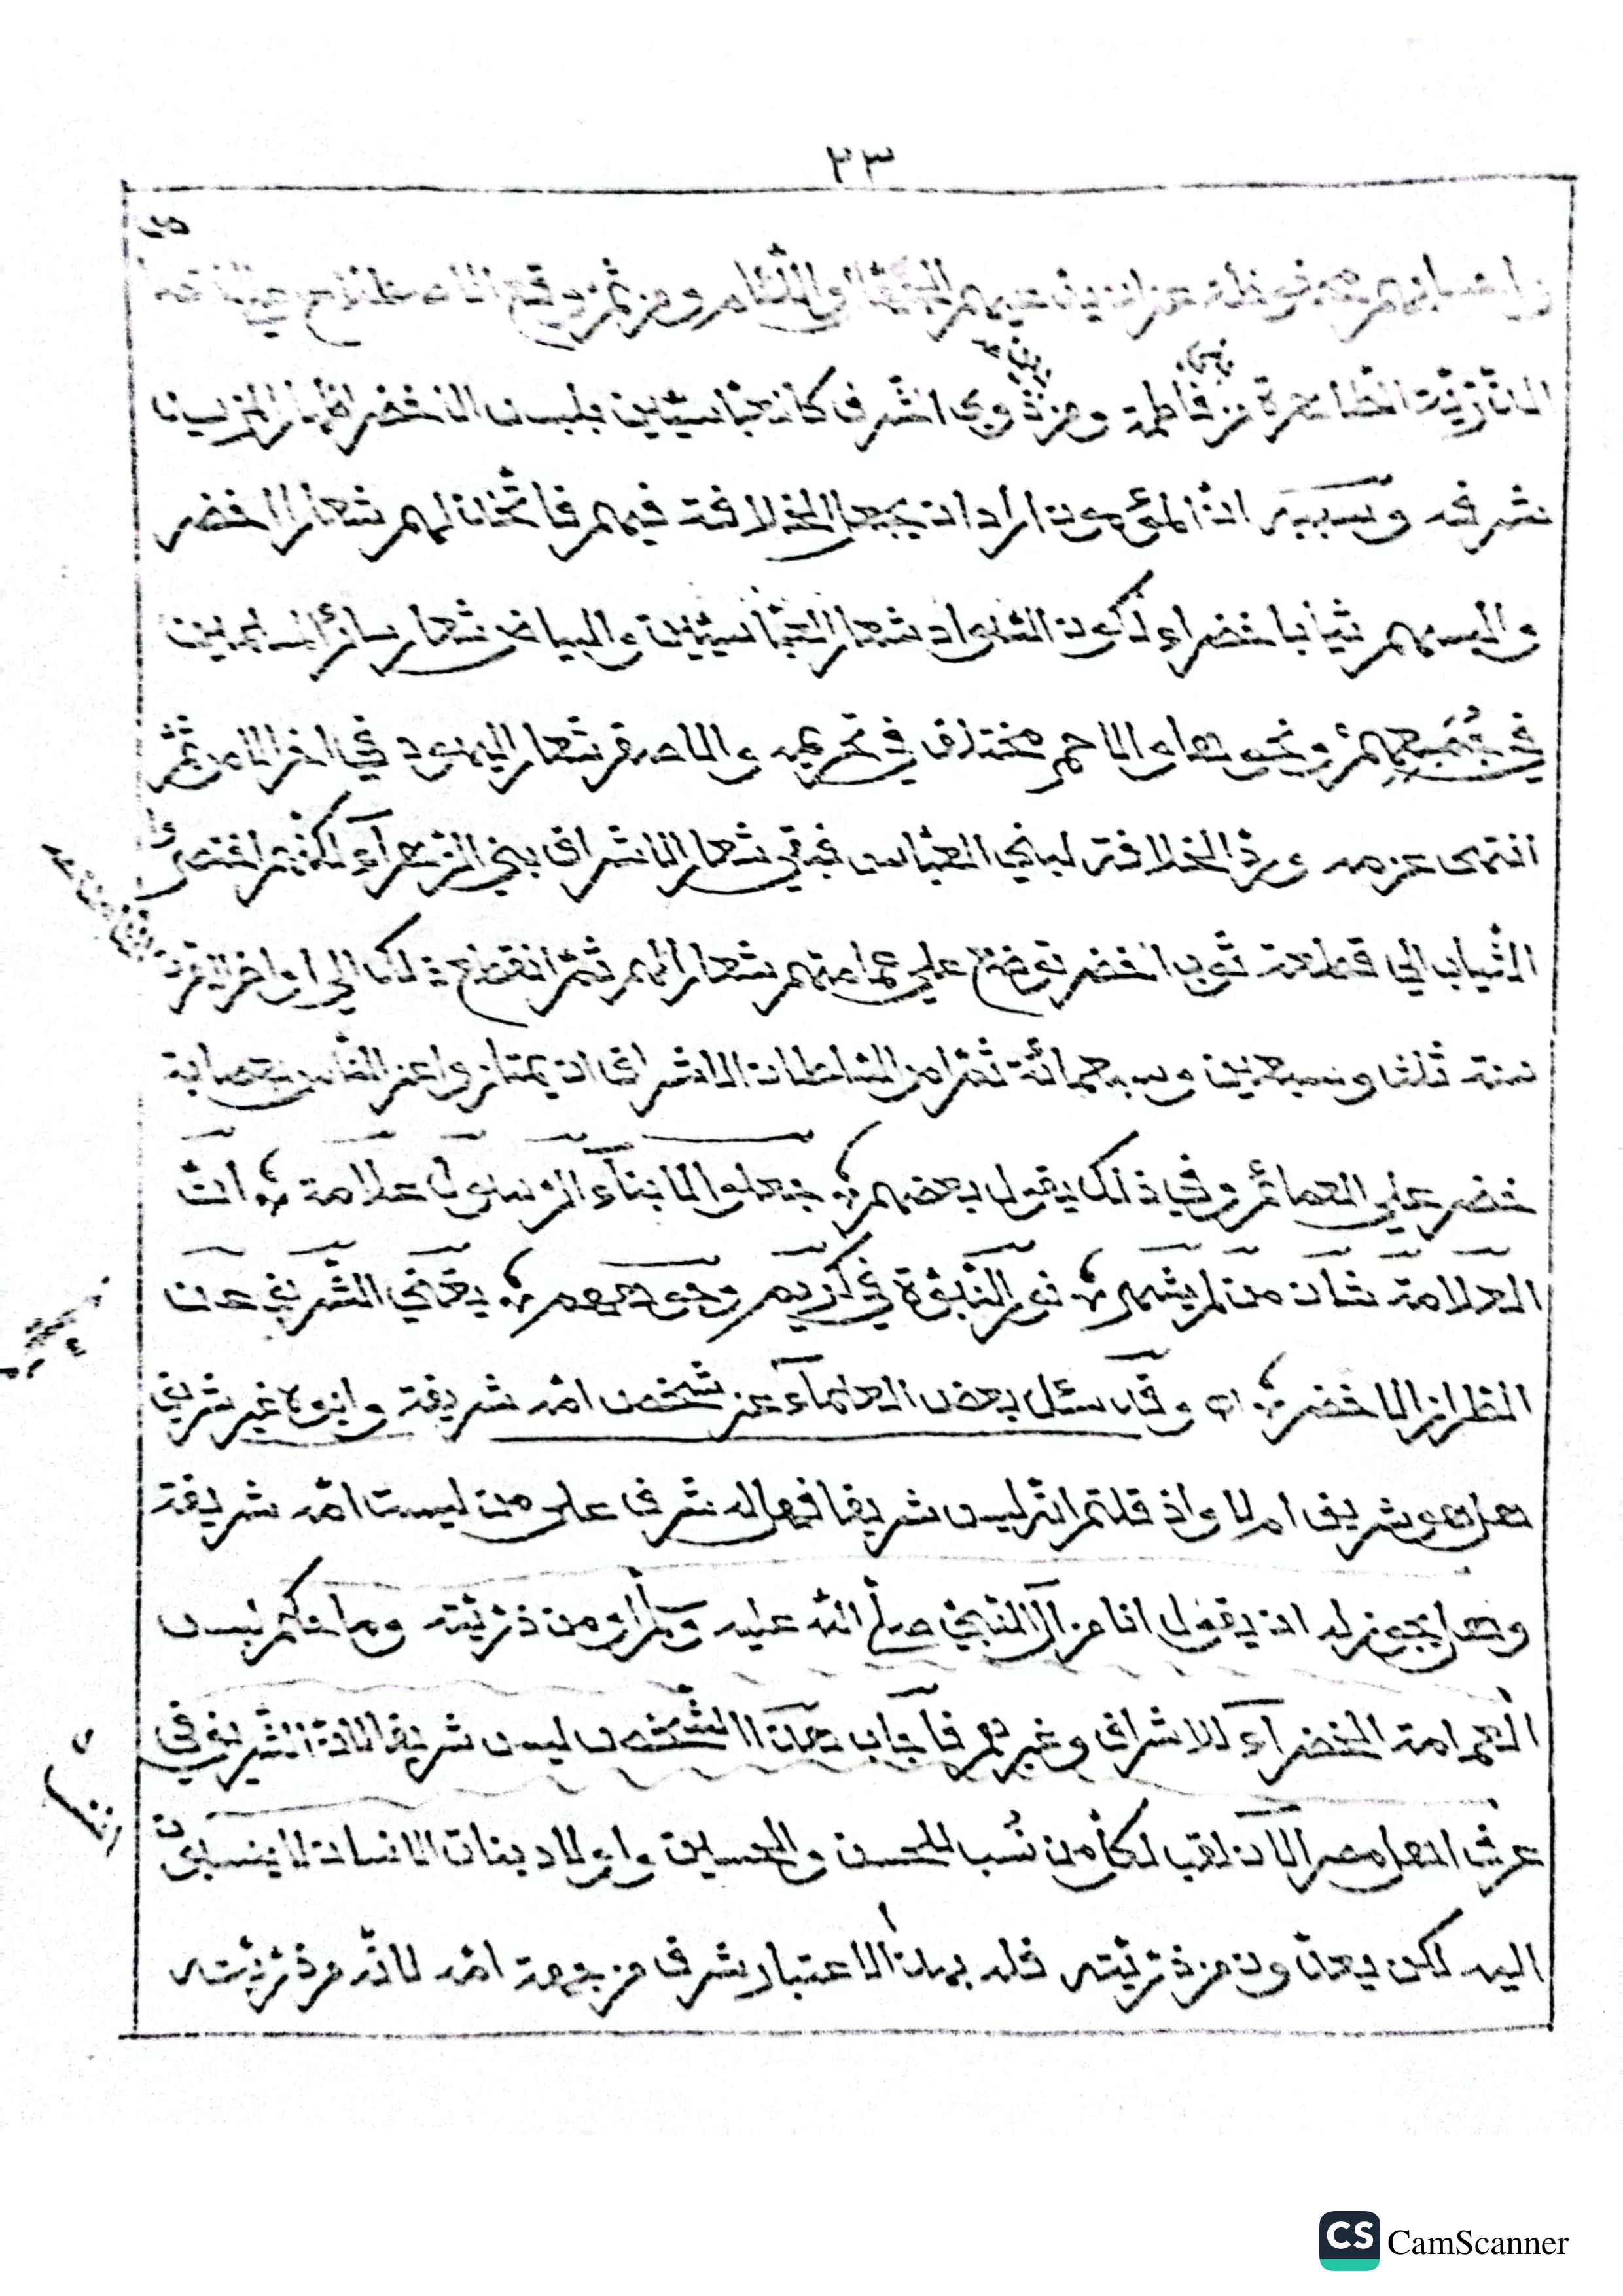 ٢٣
وانسابهم محفوظة عن ان يدعيها الجهال واللئام ومن ثم وقع الاصطلاح على اختصاص
الذرية الطاهرة من فاطمة ومن ذوي الشرف كالعباسيين بلبس الاخضر اظهارا لمزيد
شرفه وسببه ان المؤمون اراد ان يجعل الخلافة فيهم فاتخذ لهم شعارا اخضر
والبسهم ثيابا خضراء لكون السواد شعار العباسيين والبياض شعار سائر المسلمين
في جمعهم ونحوها والاحمر مختلف في تحريمه والاصفر شعار اليهود في اخر الامر ثم
انتهى عزمه ورد الخلافة لبني العباس فبقي شعار الاشراف بني الزهرآء لكنهم اختصروا
الثياب الي قطعة ثوب اخضر توضع علي عمامتهم شعارا لهم ثم انقطع ذلك الي اواخر القرن
سنة ثلث وسبعين وسبعمائة ثم امر السلطان الاشراف ان يمتازوا عن الناس بعصابة
خضر علي العمائم وفي ذلك يقول بعضهم جعلوا لابنآء الرسول علامة ان
العلامة شان من لم يشهر نور النبوة في كريم وجوههم يغني الشريف عن
الطراز الاخضر اه وقد سئل بعض العلمآء عن شخص امه شريفة وابوه غير شريف
هل هو شريف ام لا واذ قلتم انه ليس شريفا فهل له شرف على من ليست امه شريفة
وهل يجوز له ان يقول انا من آل النبي صلى الله عليه وسلم او من ذريته وما حكم لبس
العمامة الخضرآء للاشراف وغيرهم فاجاب هذا الشخص ليس شريفا لان الشريف في
عرف اهل مصر الآن لقب لكل من نسب للحسن والحسين واولاد بنات الانسان لا ينسبون
اليه لكن يعدون من ذريته فله بهذا الاعتبار شرف من جهة امه لانه من ذريته
CS CamScanner